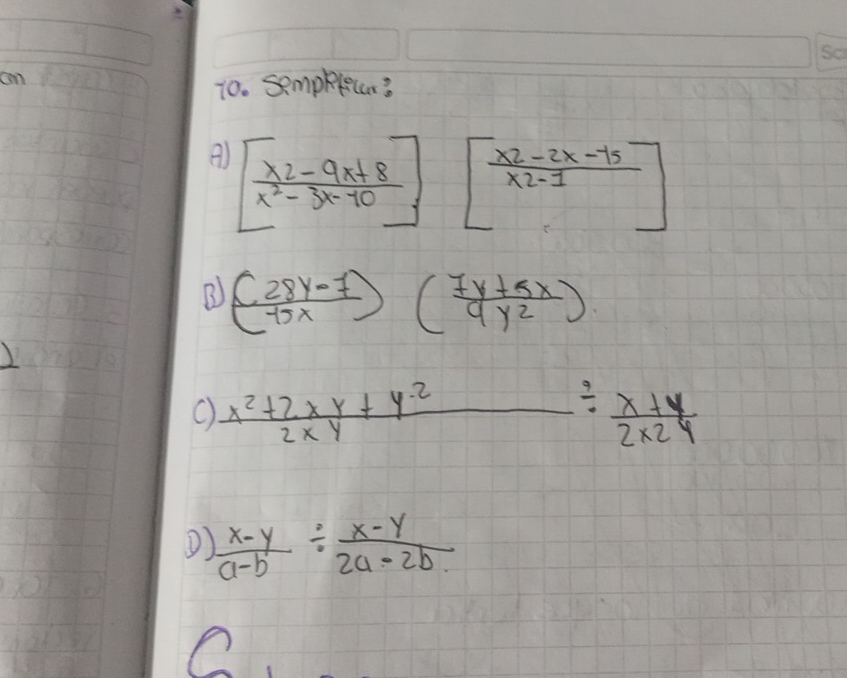 on
10. Simplificar:
A) [x2-9x+8 / x²-3x-10] [x2-2x-15 / x2-1]
B) (28y-7 / 15x) (7y+5x / 9y2).
C) x²+2xy+y2 / 2xy ÷ x+y / 2x2y
D) x-y / a-b ÷ x-y / 2a-2b.